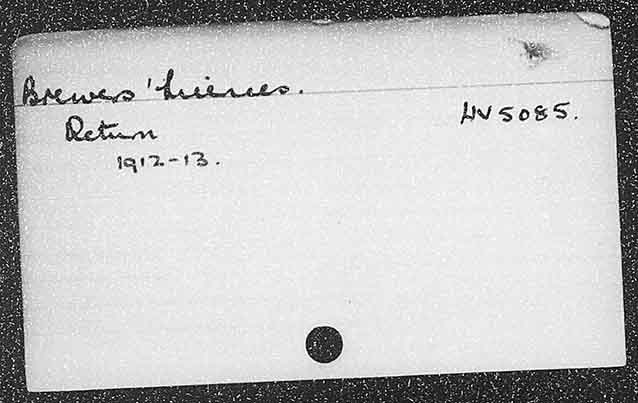 Brewers' Licences.
Return
HV5085.
1912-13.